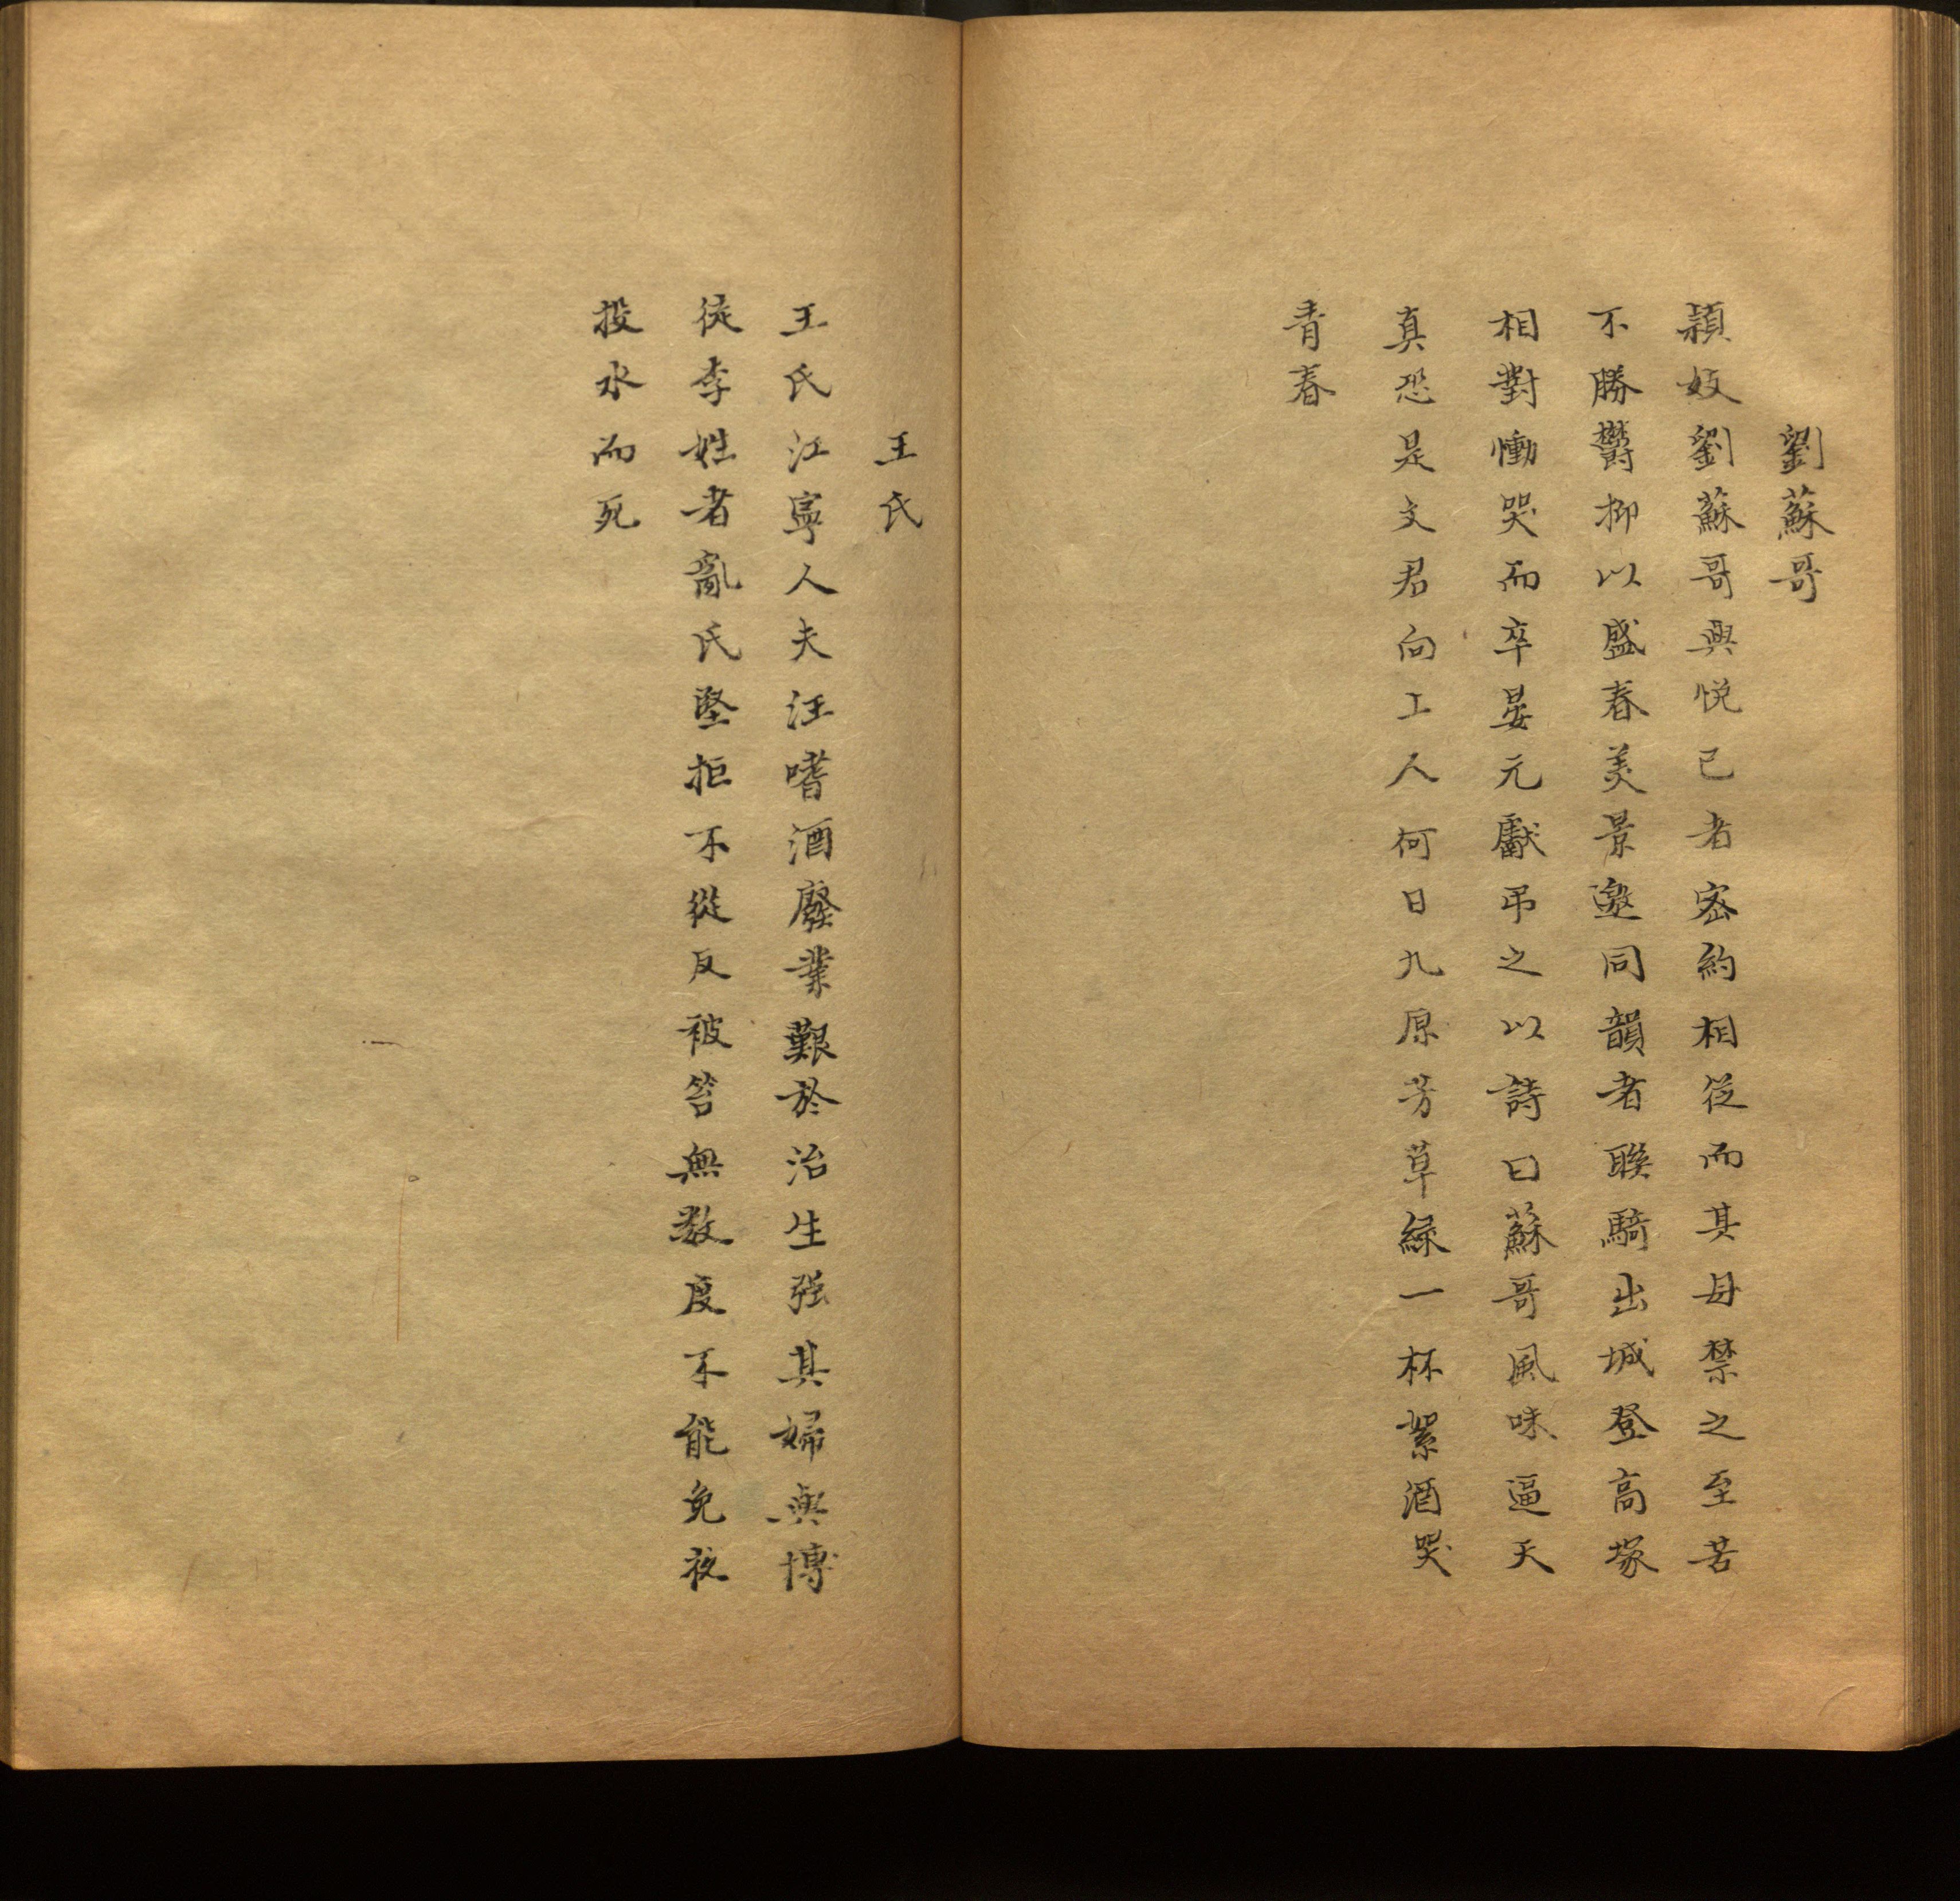 劉蘇哥
頴妓劉蘇哥與悦己者密約相從而其母禁之至苦
不勝鬱抑以盛春美景邀同韻者聯騎出城登高塚
相對慟哭而卒晏元獻弔之以詩曰蘇哥風味逼天
真恐是文君向上人何日九原芳草緑一杯絮酒哭
青春
王氏
王氏江寧人夫汪嗜酒廢業艱於治生强其婦與博
徒李姓者亂氏堅拒不從反被笞無数度不能免夜
投水而死